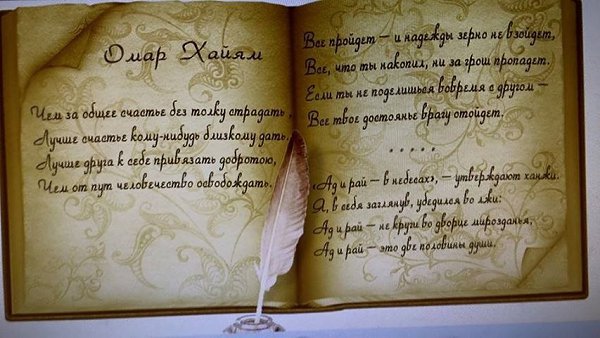 Омар Хайям
Чем за общее счастье без толку страдать,
Лучше счастье кому-нибудь близкому дать.
Лучше друга к себе привязать добротою,
Чем от пут человечество освобождать.
Все пройдет — и надежды зерно не взойдет,
Все, что ты накопил, ни за грош пропадет.
Если ты не поделишься вовремя с другом —
Все твое достоянье врагу отойдет.
* * * * *
«Ад и рай — в небесах», — утверждают ханжи.
Я, в себя заглянув, убедился во лжи:
Ад и рай — не круги во дворце мирозданья,
Ад и рай — это две половины души.